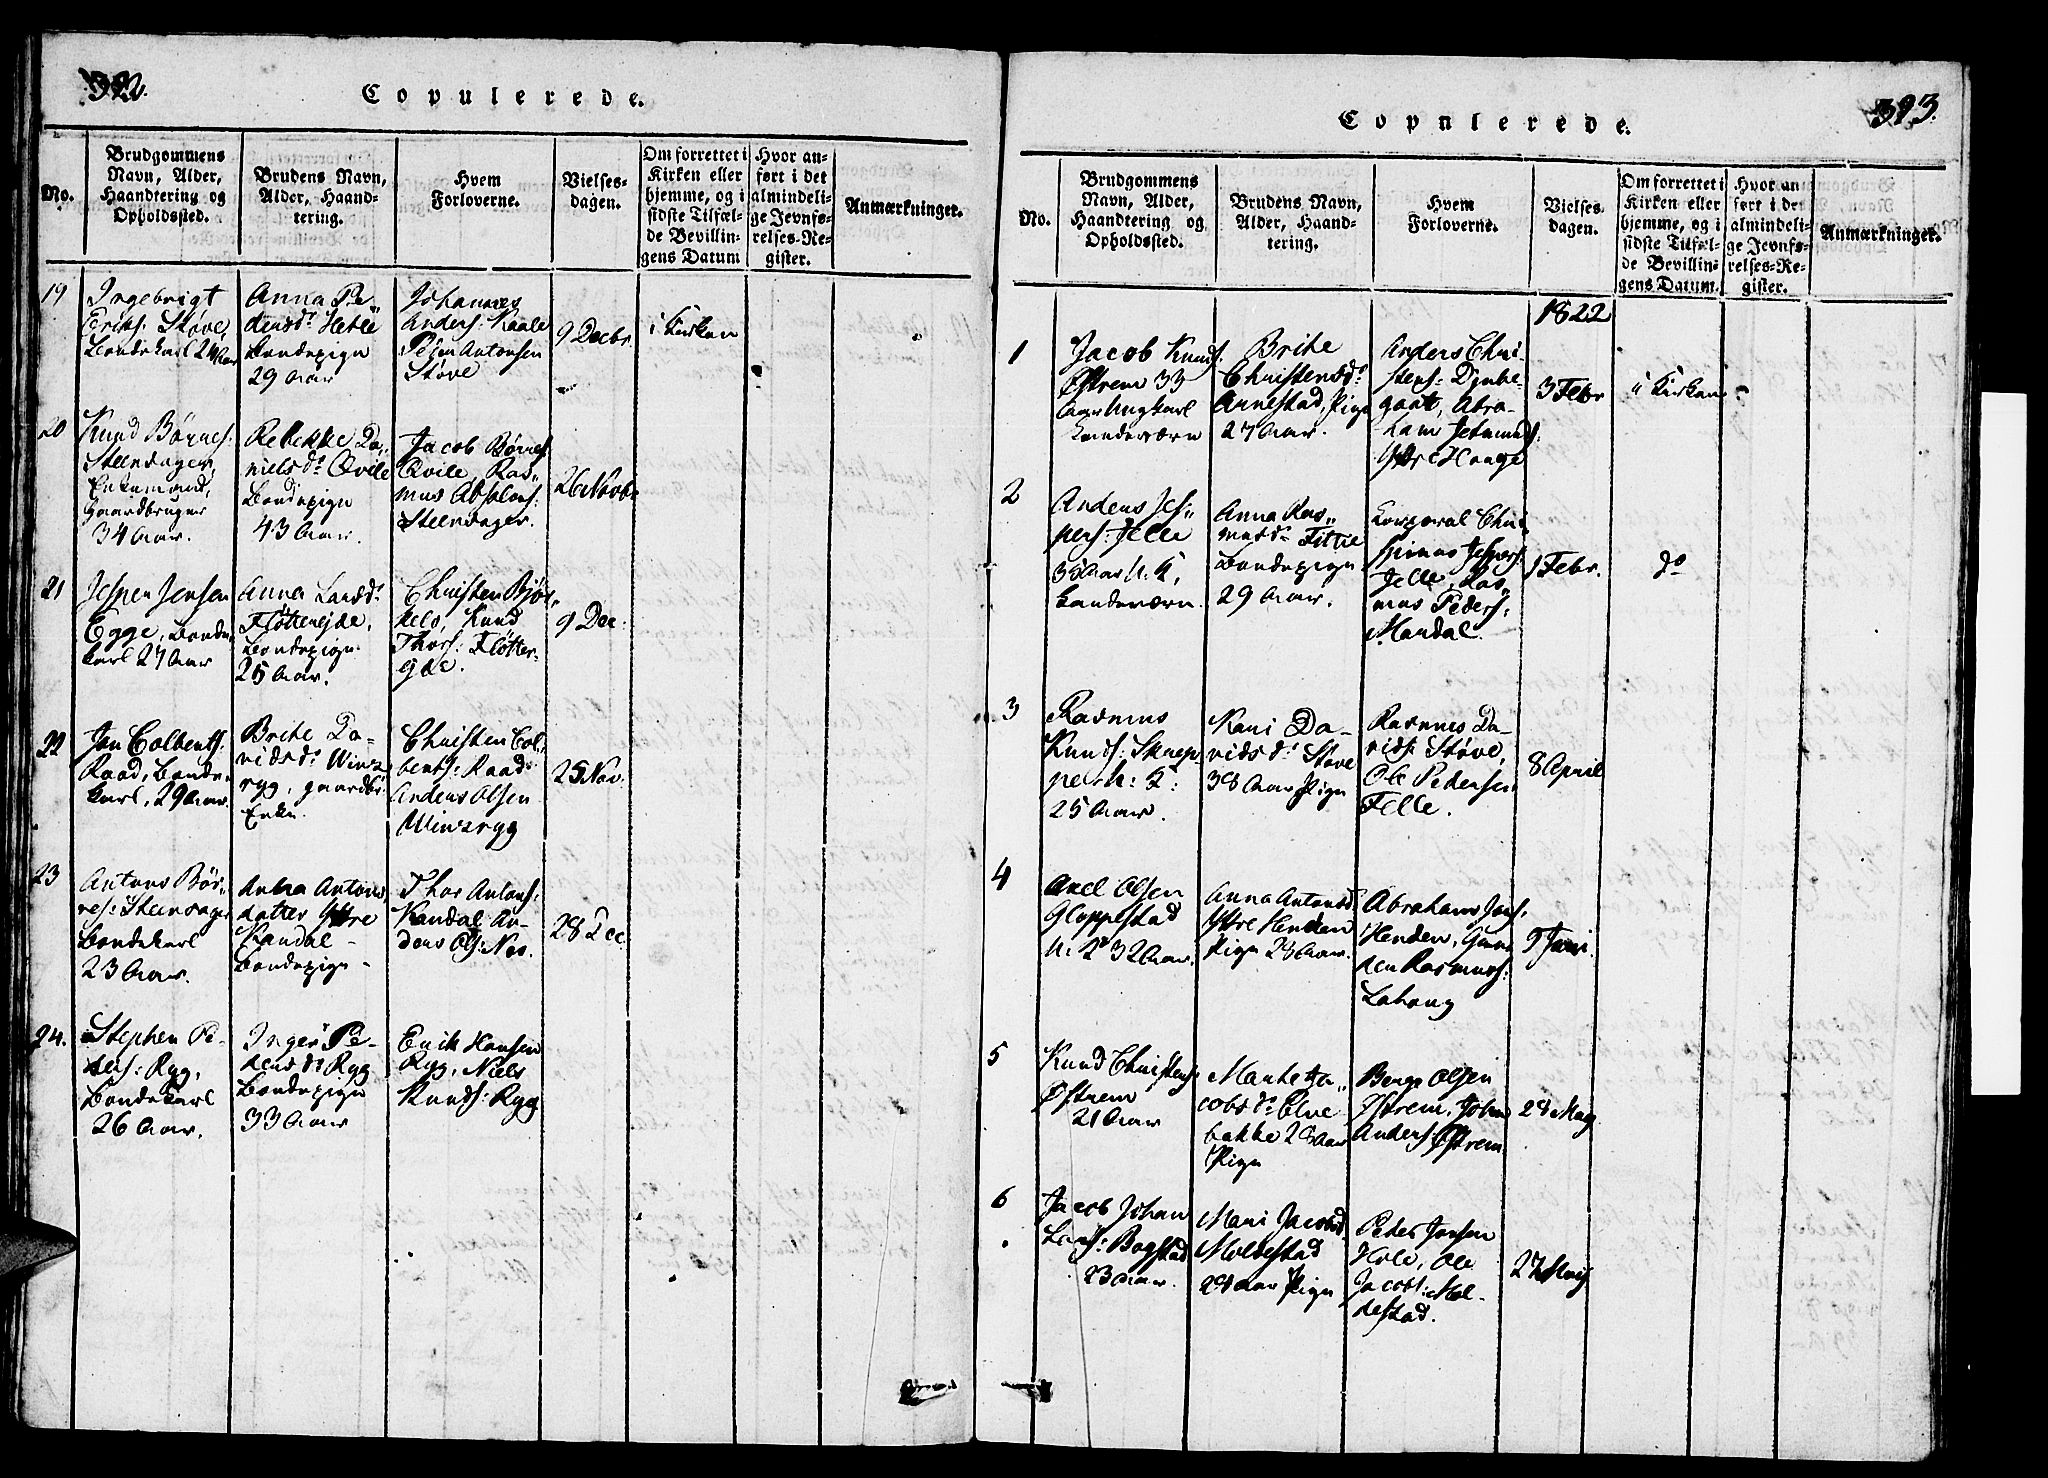 392.
Copulerede.
No.
Brudgommens
Navn, Alder,
Haandtering og
Opholdssted.
Brudens Navn,
Alder, Haand-
tering.
Hvem
Forloverne.
Vielses-
dagen.
Om forrettet i
Kirken eller
hjemme, og i
sidste Tilfæl-
de Bevillin-
gens Datum
Hvor an-
ført i det
almindeli-
ge Jevnfø-
relses-Re-
gister.
Anmærkninger.
19
Ingebrigt
Eriks: Støve
Bondekarl 24 Aar
Anna Pe-
dersdr. Hetle
Bondepige
29 Aar
Johannes
Anders: Kaale
Peder Antonsen
Støve
9 Decbr.
i Kirken
20
Knud Børres:
Steensager,
Enkemand,
Gaardbruger
34 Aar.
Rebekke Da-
nielsdr. Qvile
Bondepige
43 Aar.
Jacob Børres:
Qvile, Ras-
mus Absalons:
Steensager.
26 Novbr
21
Jespen Jensen
Egge, Bonde-
karl 27 Aar
Anna Larsdr.
Fløttenejde,
Bondepige
25 Aar.
Christen Bjør-
kelo, Knud
Thors: Fløtter-
gde.
9 Dec:
22
Jon Colbents:
Raad, Bonde-
karl, 29 Aar.
Brite Da-
vidsdr. Winz
ryg, gaardbr.
Enke.
Christen Col-
bents: Raad
Anders Olsen
Winzryg
25 Nov:
23
Antons Bør-
res: Steensager
Bondekarl
23 Aar.
Anna Antons
datter Yttre
Kandal -
Bondepige -
Thor Antons:
Kandal An-
ders Ols: Nes.
28 Dec:
24.
Stephen Pe-
ders: Ryg,
Bondekarl
26 Aar.
Inger Pe-
dersdr. Ryg
Bondepige
33 Aar
Erik Hansen
Ryg, Niels
Knuds: Ryg
393.
Copulerede.
No.
Brudgommens
Navn, Alder,
Haandtering og
Opholdssted.
Brudens Navn,
Alder, Haand-
tering.
Hvem
Forloverne.
Vielses-
dagen.
Om forrettet i
Kirken eller
hjemme, og i
sidste Tilfæl-
de Bevillin-
gens Datum.
Hvor an-
ført i det
almindeli-
ge Jevnfø-
relses-Re-
gister.
Anmærkninger.
1822
1
Jacob Knuds:
Østrem 33
Aar Ungkarl
Landeværn
Brite
Christensdr.
Arnestad, Pige
27 Aar.
Anders Chri-
stens: Dynbe-
gaat, Abra-
ham Jetmunds:
Yttre Hauge
3 Febr
i Kirken
2
Anders Jes-
pers: Jelle
35 Aar U: K,
Landeværn.
Anna Ras-
musdr. Fittie
Bondepige
29 Aar.
Korporal Chri-
spinus Jespers:
Jelle, Ras-
mus Peders:
Mandal.
1 Febr.
do
3
Rasmus
Knuds: Skrep
pe U: K:
25 Aar.
Kari Da-
vidsdr. Støve
38 Aar Pige
Rasmus Da-
vids: Støve,
Ole Pedersen
Felle.
8 April
4
Axel Olsen
Gloppestad
U. K 32 Aar.
Anna Antonsdr.
Yttre Henden
Pige 28 Aar.
Abrahams Jons:
Henden, Gun-
der Rasmus:
Lahaug
9 Juni.
5
Knud Christens:
Østrem
21 Aar
Marte Ja-
cobsdr. Elve
bakke 28 Aar
Pige
Berge Olsen
Østrem, John
Anders: Østrem
28 May
6
Jacob Johan
Lars: Bogstad
23 Aar.
Mari Jacobsd.
Moldestad
24 Aar Pige
Peder Jonsen
Hole, Ole
Jacobs: Mol-
destad.
27 Maij